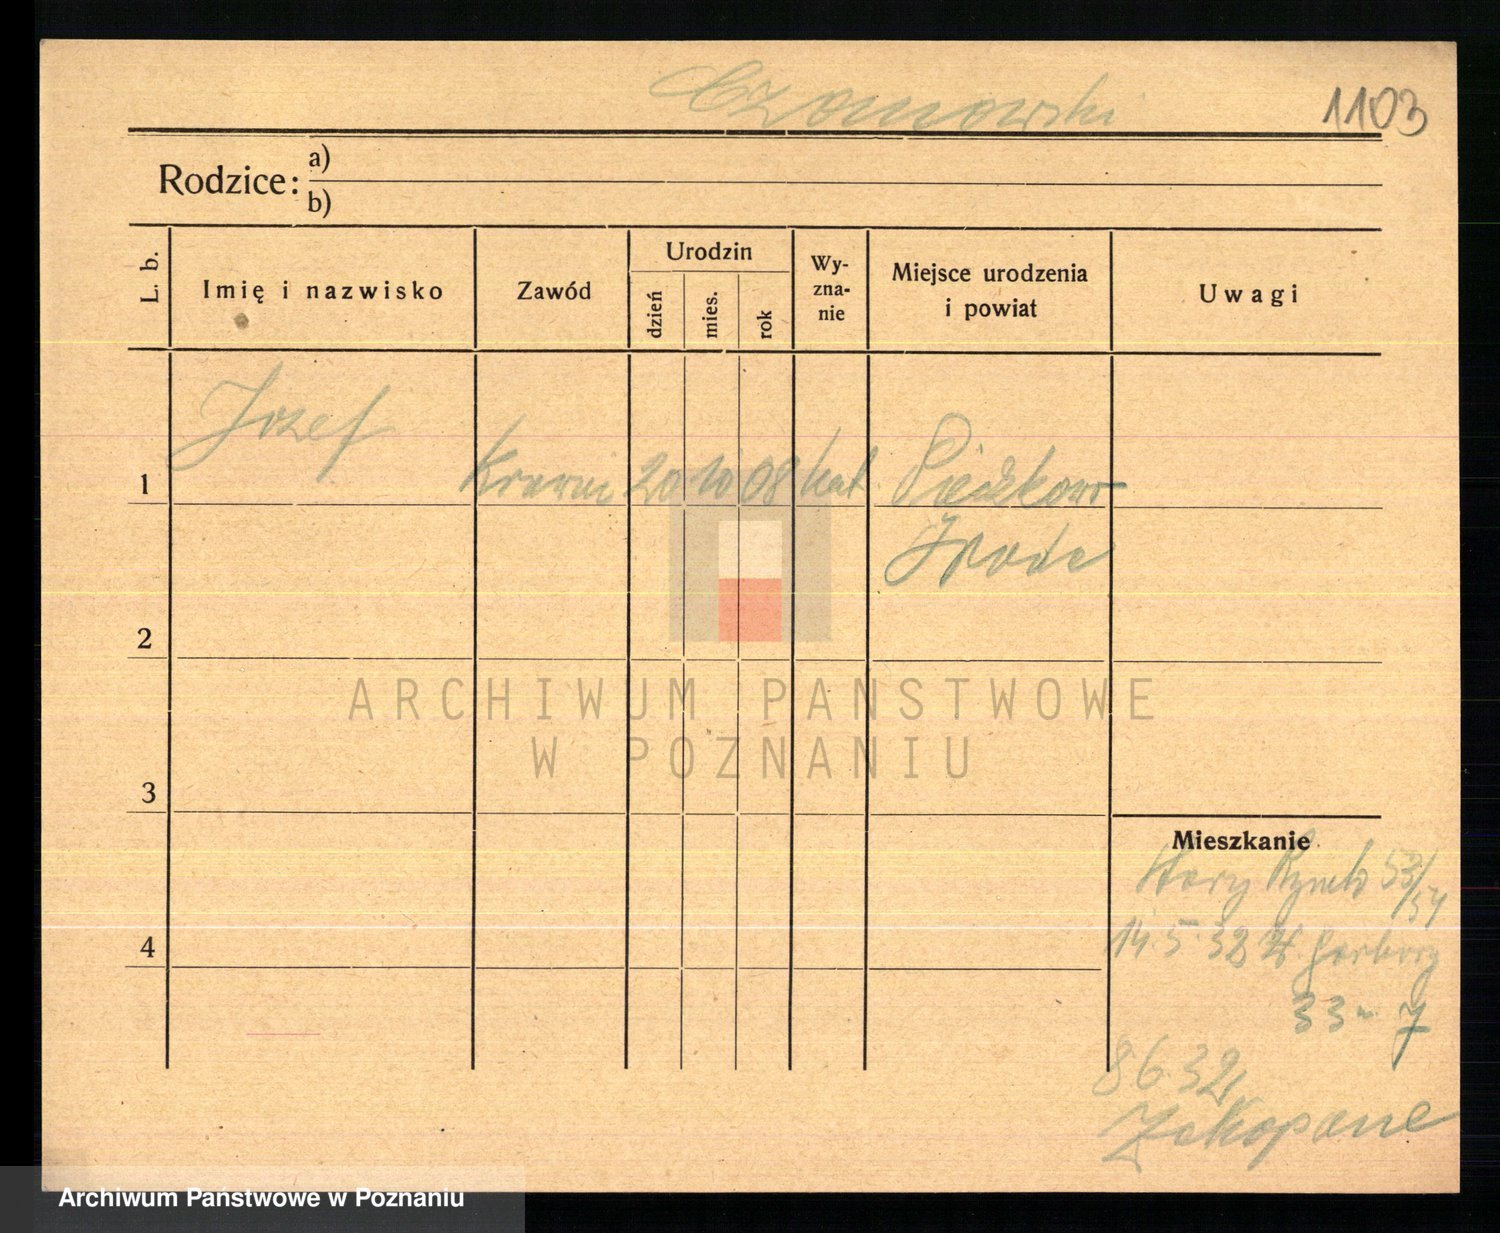 Czomowski
1103
Rodzice:
a)
b)
L. b.
Imię i nazwisko
Zawód
Urodzin
dzień
mies.
rok
Wy-
zna-
nie
Miejsce urodzenia
i powiat
Uwagi
1
Jozef
20 10 08 kat.
2
3
4
Mieszkanie
Stary Rynek 53/54
14.5.32 Garbary
33 7
8 6 32
Zakopane
ARCHIWUM PAŃSTWOWE
W POZNANIU
Archiwum Państwowe w Poznaniu